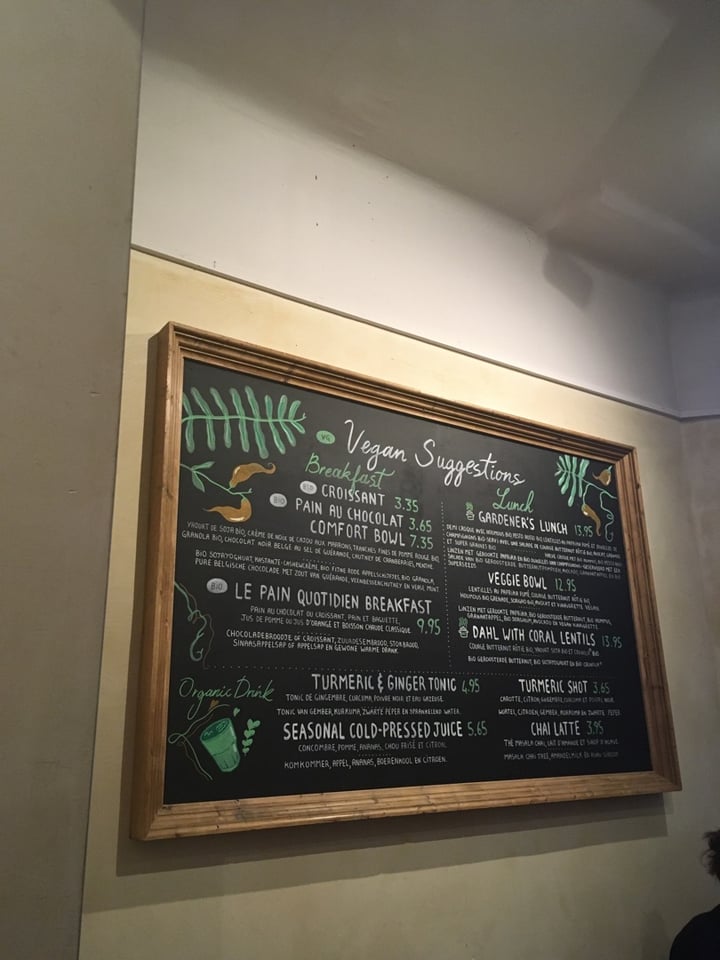 VG Vegan Suggestions
Breakfast
BIO CROISSANT 3.35
BIO PAIN AU CHOCOLAT 3.65
COMFORT BOWL 7.35
YAOURT DE SOJA BIO, CRÈME DE NOIX DE CAJOU AUX MARRONS, TRANCHES FINES DE POMME ROUGE BIO,
GRANOLA BIO, CHOCOLAT NOIR BELGE AU SEL DE GUÉRANDE, CHUTNEY DE CANNEBERGES, MENTHE
BIO SOYAYOGHURT, KASTANJE-CASHEWCRÈME, BIO FIJNE RODE APPELSCHIJFJES, BIO GRANOLA,
PURE BELGISCHE CHOCOLADE MET ZOUT VAN GUÉRANDE, VEENBESSENCHUTNEY EN VERSE MUNT
BIO LE PAIN QUOTIDIEN BREAKFAST 9,95
PAIN AU CHOCOLAT OU CROISSANT, PAIN ET BAGUETTE,
JUS DE POMME OU JUS D'ORANGE ET BOISSON CHAUDE CLASSIQUE
CHOCOLADEBROODJE OF CROISSANT, ZUURDESEMBROOD, STOKBROOD,
SINAASAPPELSAP OF APPELSAP EN GEWONE WARME DRANK
Lunch
GARDENER'S LUNCH 13.95
VEGGIE BOWL 12.95
LENTILLES AU PAPRIKA FUMÉ, COURGE BUTTERNUT RÔTIE BIO,
HOUMOUS BIO, GRENADE, SORGHO BIO, AVOCAT ET VINAIGRETTE VEGAN
LINZEN MET GEROOKTE PAPRIKA, BIO GEROOSTERDE BUTTERNUT, BIO HUMMUS,
GRANAATAPPEL, BIO SORGHUM, AVOCADO EN VEGAN VINAIGRETTE
DAHL WITH CORAL LENTILS 13.95
COURGE BUTTERNUT RÔTIE BIO, YAOURT SOJA BIO ET CRUNOLA® BIO
BIO GEROOSTERDE BUTTERNUT, BIO SOJAYOGHURT EN BIO CRUNOLA®
Organic Drink
TURMERIC & GINGER TONIC 4.95
TONIC DE GINGEMBRE, CURCUMA, POIVRE NOIR ET EAU GAZEUSE.
TONIC VAN GEMBER, KURKUMA, ZWARTE PEPER EN SPRANKELEND WATER.
SEASONAL COLD-PRESSED JUICE 5.65
CONCOMBRE, POMME, ANANAS, CHOU FRISÉ ET CITRON.
KOMKOMMER, APPEL, ANANAS, BOERENKOOL EN CITROEN.
TURMERIC SHOT 3.65
CAROTTE, CITRON, GINGEMBRE, CURCUMA ET POIVRE NOIR
WORTEL, CITROEN, GEMBER, KURKUMA EN ZWARTE PEPER
CHAI LATTE 3.95
THÉ MASALA CHAI, LAIT D'AMANDE ET SIROP D'AGAVE.
MASALA CHAI THEE, AMANDELMELK EN AGAVE SIROOP